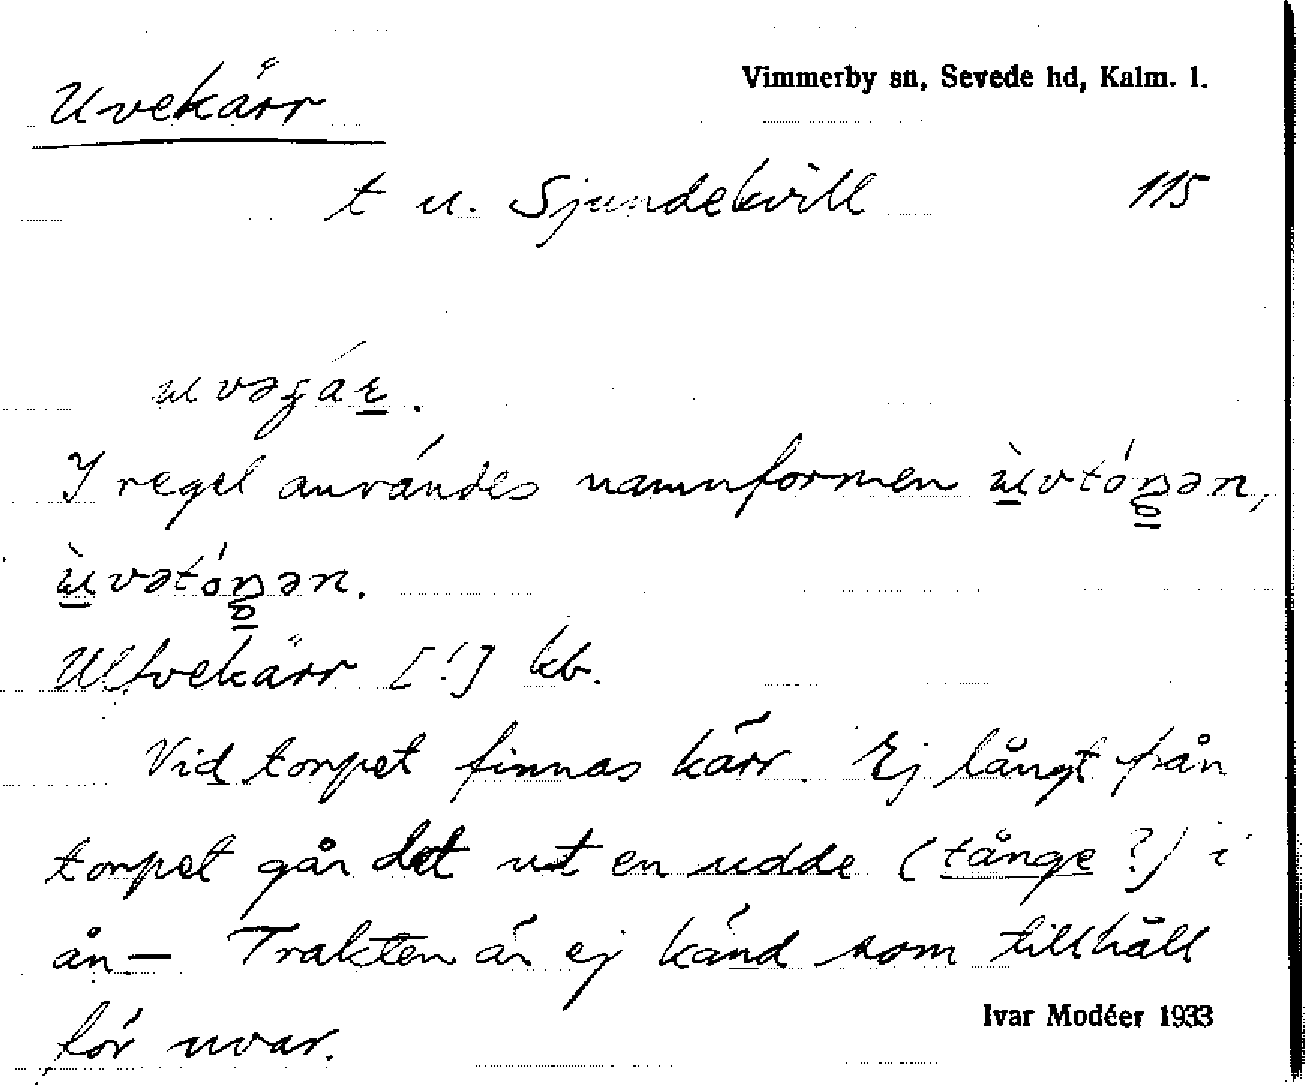 Uvekärr
Vimmerby sn, Sevede hd, Kalm. l.
t u. Sjundekvill 115
I regel användes namnformen
Ulfvekärr [!] kb.
Vid torpet finnas kärr. Ej långt från
torpet går det ut en udde (tånge?) i
ån – Trakten är ej känd som tillhåll
för uvar.
Ivar Modéer 1933